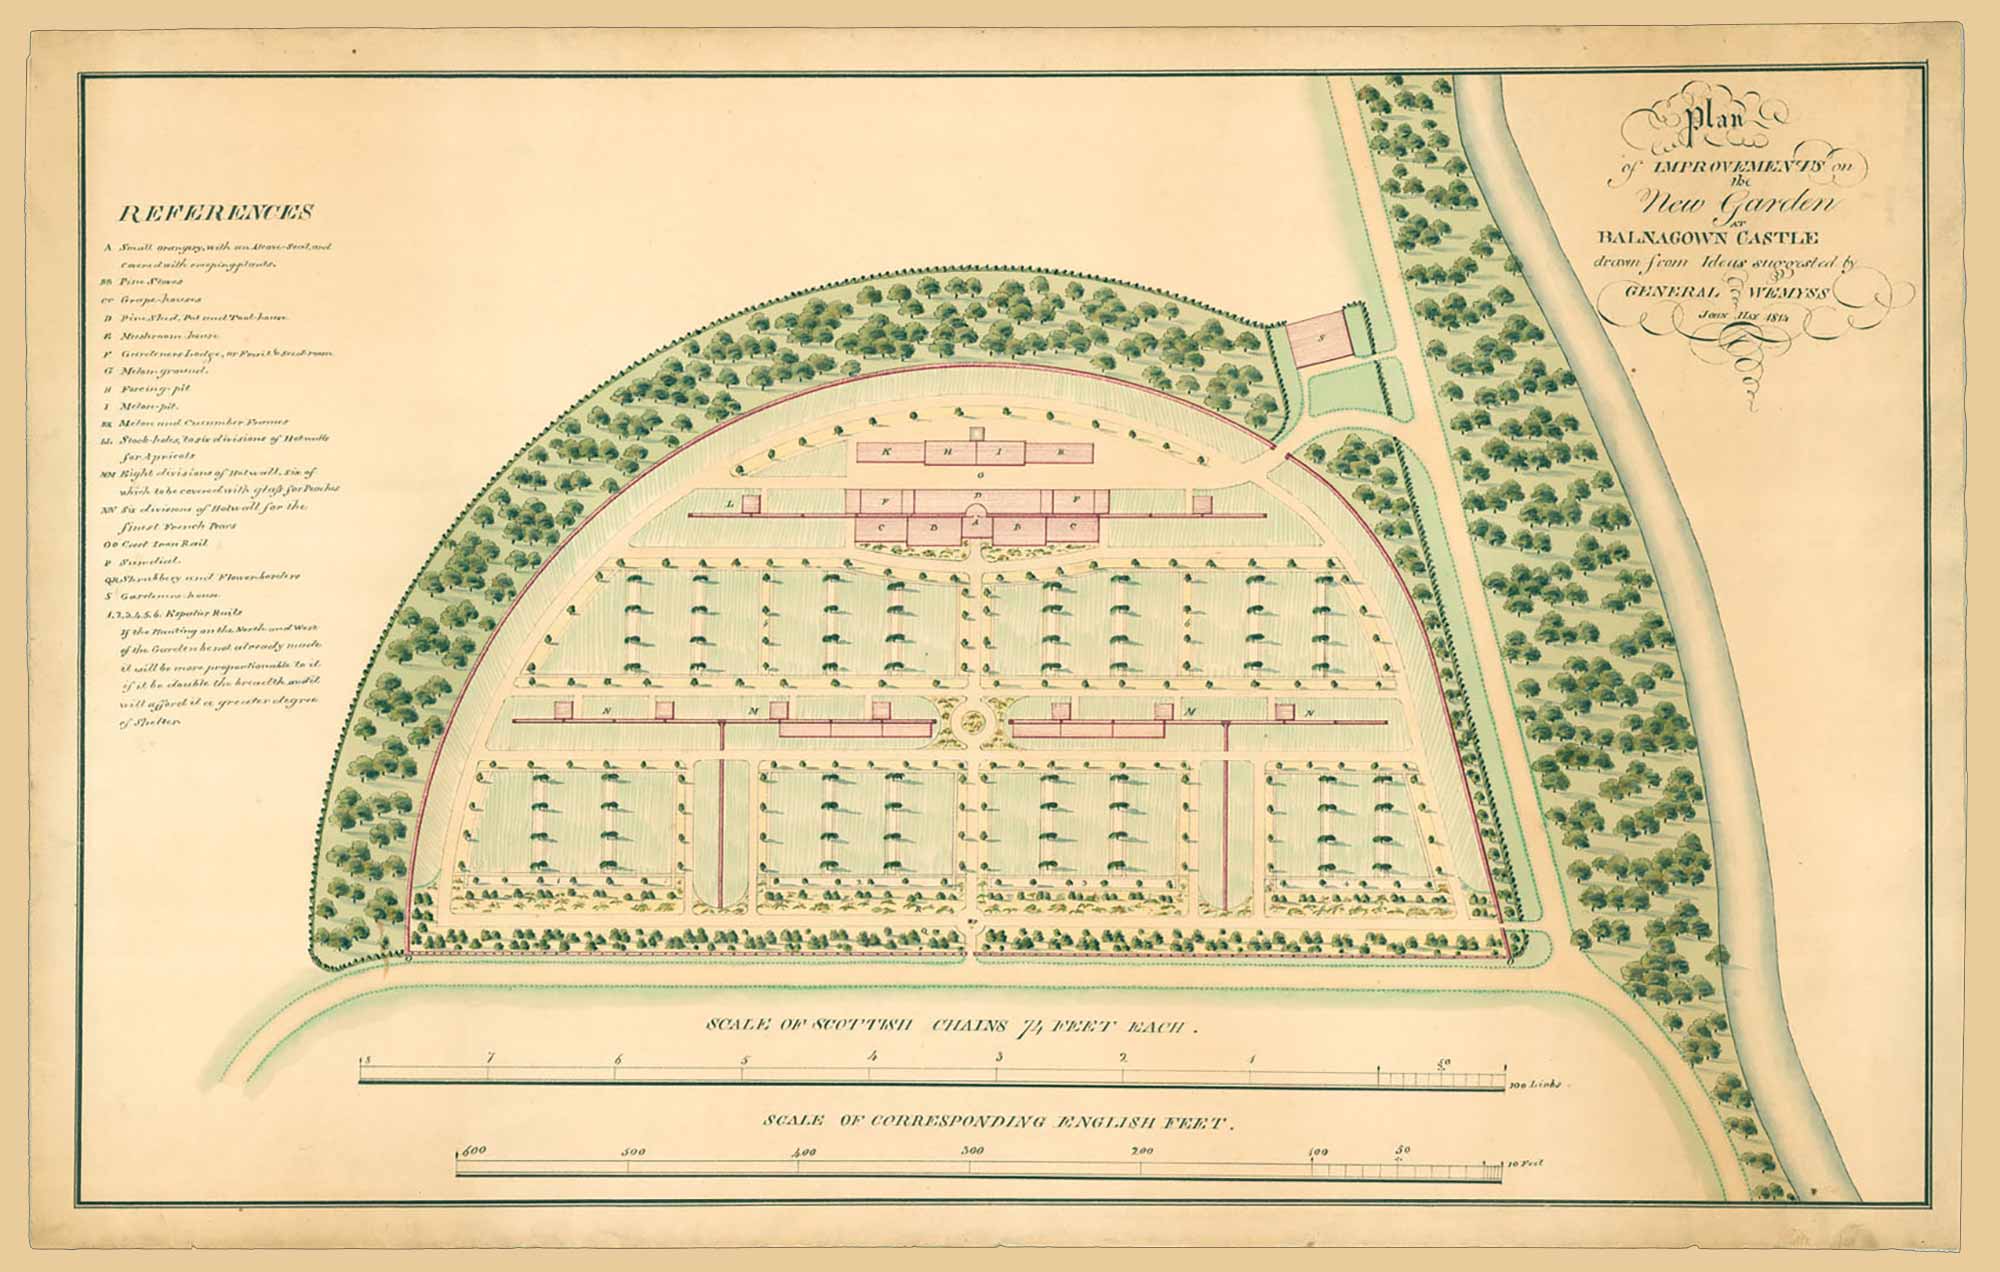 Plan
of IMPROVEMENTS on
the
New Garden
AT
BALNAGOWN CASTLE
drawn from Ideas suggested by
GENERAL WEMYSS
John Hay 1814
REFERENCES
A Small orangery, with an Alcove-Seat, and
covered with creeping plants.
BB Pine Stoves
CC Grape-houses
D Pine Shed, Pot and Tool-house
E Mushroom-house
F Gardeners Lodge, or Fruit & Seed room
G Melon-ground.
H Forcing-pit
I Melon-pit.
KK Melon and Cucumber Frames
LL Stock-holes, to six divisions of Hotwalls
for Apricots
MM Eight divisions of Hotwall, six of
which to be covered with glass for Peaches
NN Six divisions of Hotwall for the
finest French Pears
OO Cast Iron Rail
P Sundial.
QR Shrubbery and Flower borders
S Gardeners-house
1, 2, 3, 4, 5, 6. Espalier Rails
If the Planting on the North and West
of the Garden be not already made
it will be more proportionable to it
if it be double the breadth and it
will afford it a greater degree
of Shelter
S
K H I K
G
L F D F
A
C B B C
N M M N
1 2 3 4
Q
R
P
O
SCALE OF SCOTTISH CHAINS 74 FEET EACH.
8 7 6 5 4 3 2 1 50 100 Links
SCALE OF CORRESPONDING ENGLISH FEET.
600 500 400 300 200 100 50 10 Feet